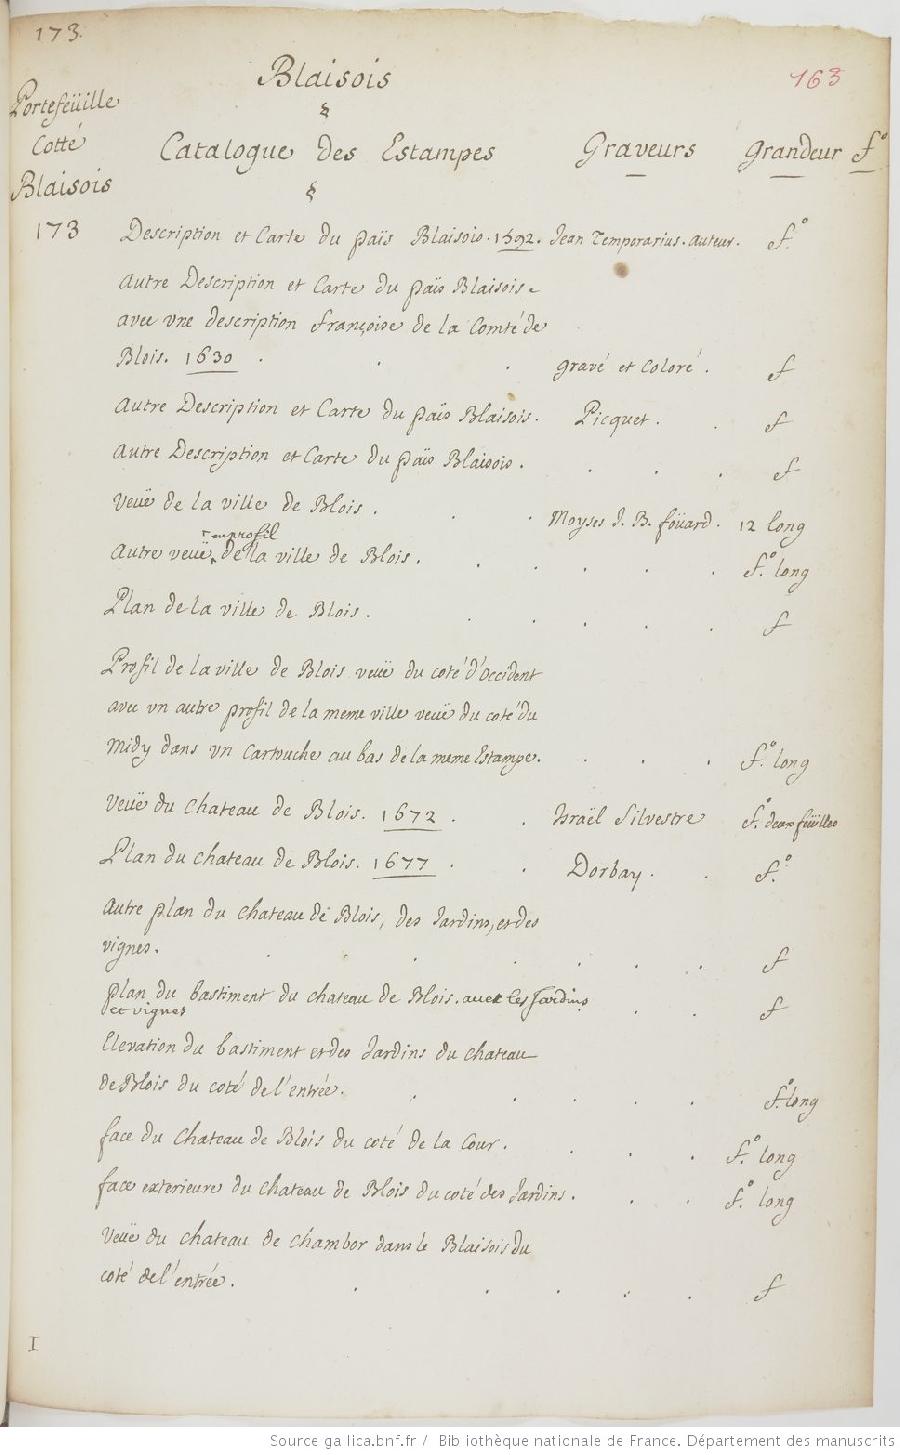 173.
163
Blaisois
Portefeüille
Cotté
Blaisois
Catalogue des Estampes Graveurs Grandeur f°
173 Description et Carte du païs Blaisois. 1592. Jean Temporarius. auteur. f.°
Autre Description et Carte du païs Blaisois
avec vne description françoise de la Comté de
Blois. 1630 . . . gravé et Coloré. f
Autre Description et Carte du païs Blaisois. Picquet. . f
Autre Description et Carte du païs Blaisois. . . . f
Veuë de la ville de Blois. . . Moyses J. B. foüard. 12 long
en profil
Autre veuë de la ville de Blois. . . . . . f.° long
Plan de la ville de Blois. . . . . . f
Profil de la ville de Blois veuë du coté d'Occident
avec vn autre profil de la meme ville veuë du coté du
Midy dans vn Cartouche au bas de la meme Estampe. . . . f.° long
Veuë du Chateau de Blois. 1672 . . Israël Silvestre f.° deux feüilles
Plan du Chateau de Blois. 1677 . . Dorbay. . f.°
Autre plan du Chateau de Blois, des Jardins, et des
vignes. . . . . . . f
plan du bastiment du chateau de Blois. avec les Jardins . . f
et vignes
Elevation du bastiment et des Jardins du chateau
de Blois du coté de l'entrée. . . . . . f.° long
face du Chateau de Blois du coté de la Cour. . . . f.° long
face exterieure du Chateau de Blois du coté des Jardins. . . f.° long
Veuë du chateau de Chambor dans le Blaisois du
coté de l'entrée. . . . . . f
I
Source gallica.bnf.fr / Bibliothèque nationale de France. Département des manuscrits